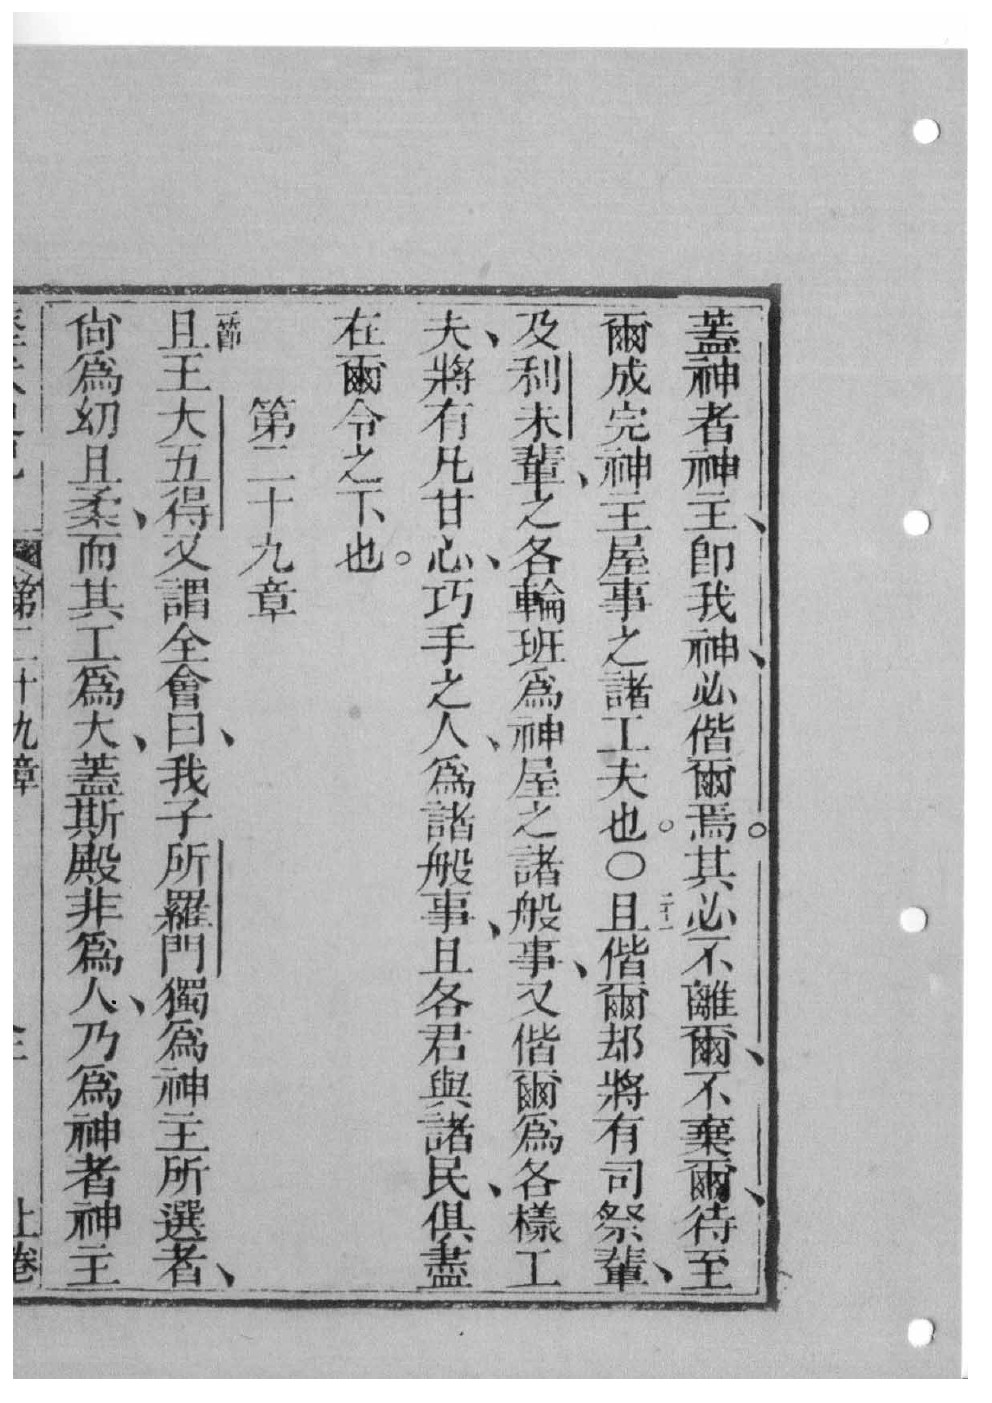 蓋神者神主、卽我神、必偕爾焉。其必不離爾、不棄爾、待至
爾成完神主屋事之諸工夫也。〇二十一且偕爾却將有司祭輩、
及利未輩、之各輪班爲神屋之諸般事、又偕爾爲各樣工
夫、將有凡甘心、巧手之人、爲諸般事、且各君與諸民、俱盡
在爾令之下也。
第二十九章
一節且王大五得又謂全會曰、我子所羅門獨爲神主所選者、
尙爲幼且柔、而其工爲大、蓋斯殿非爲人、乃爲神者神主
第二十九章 上卷